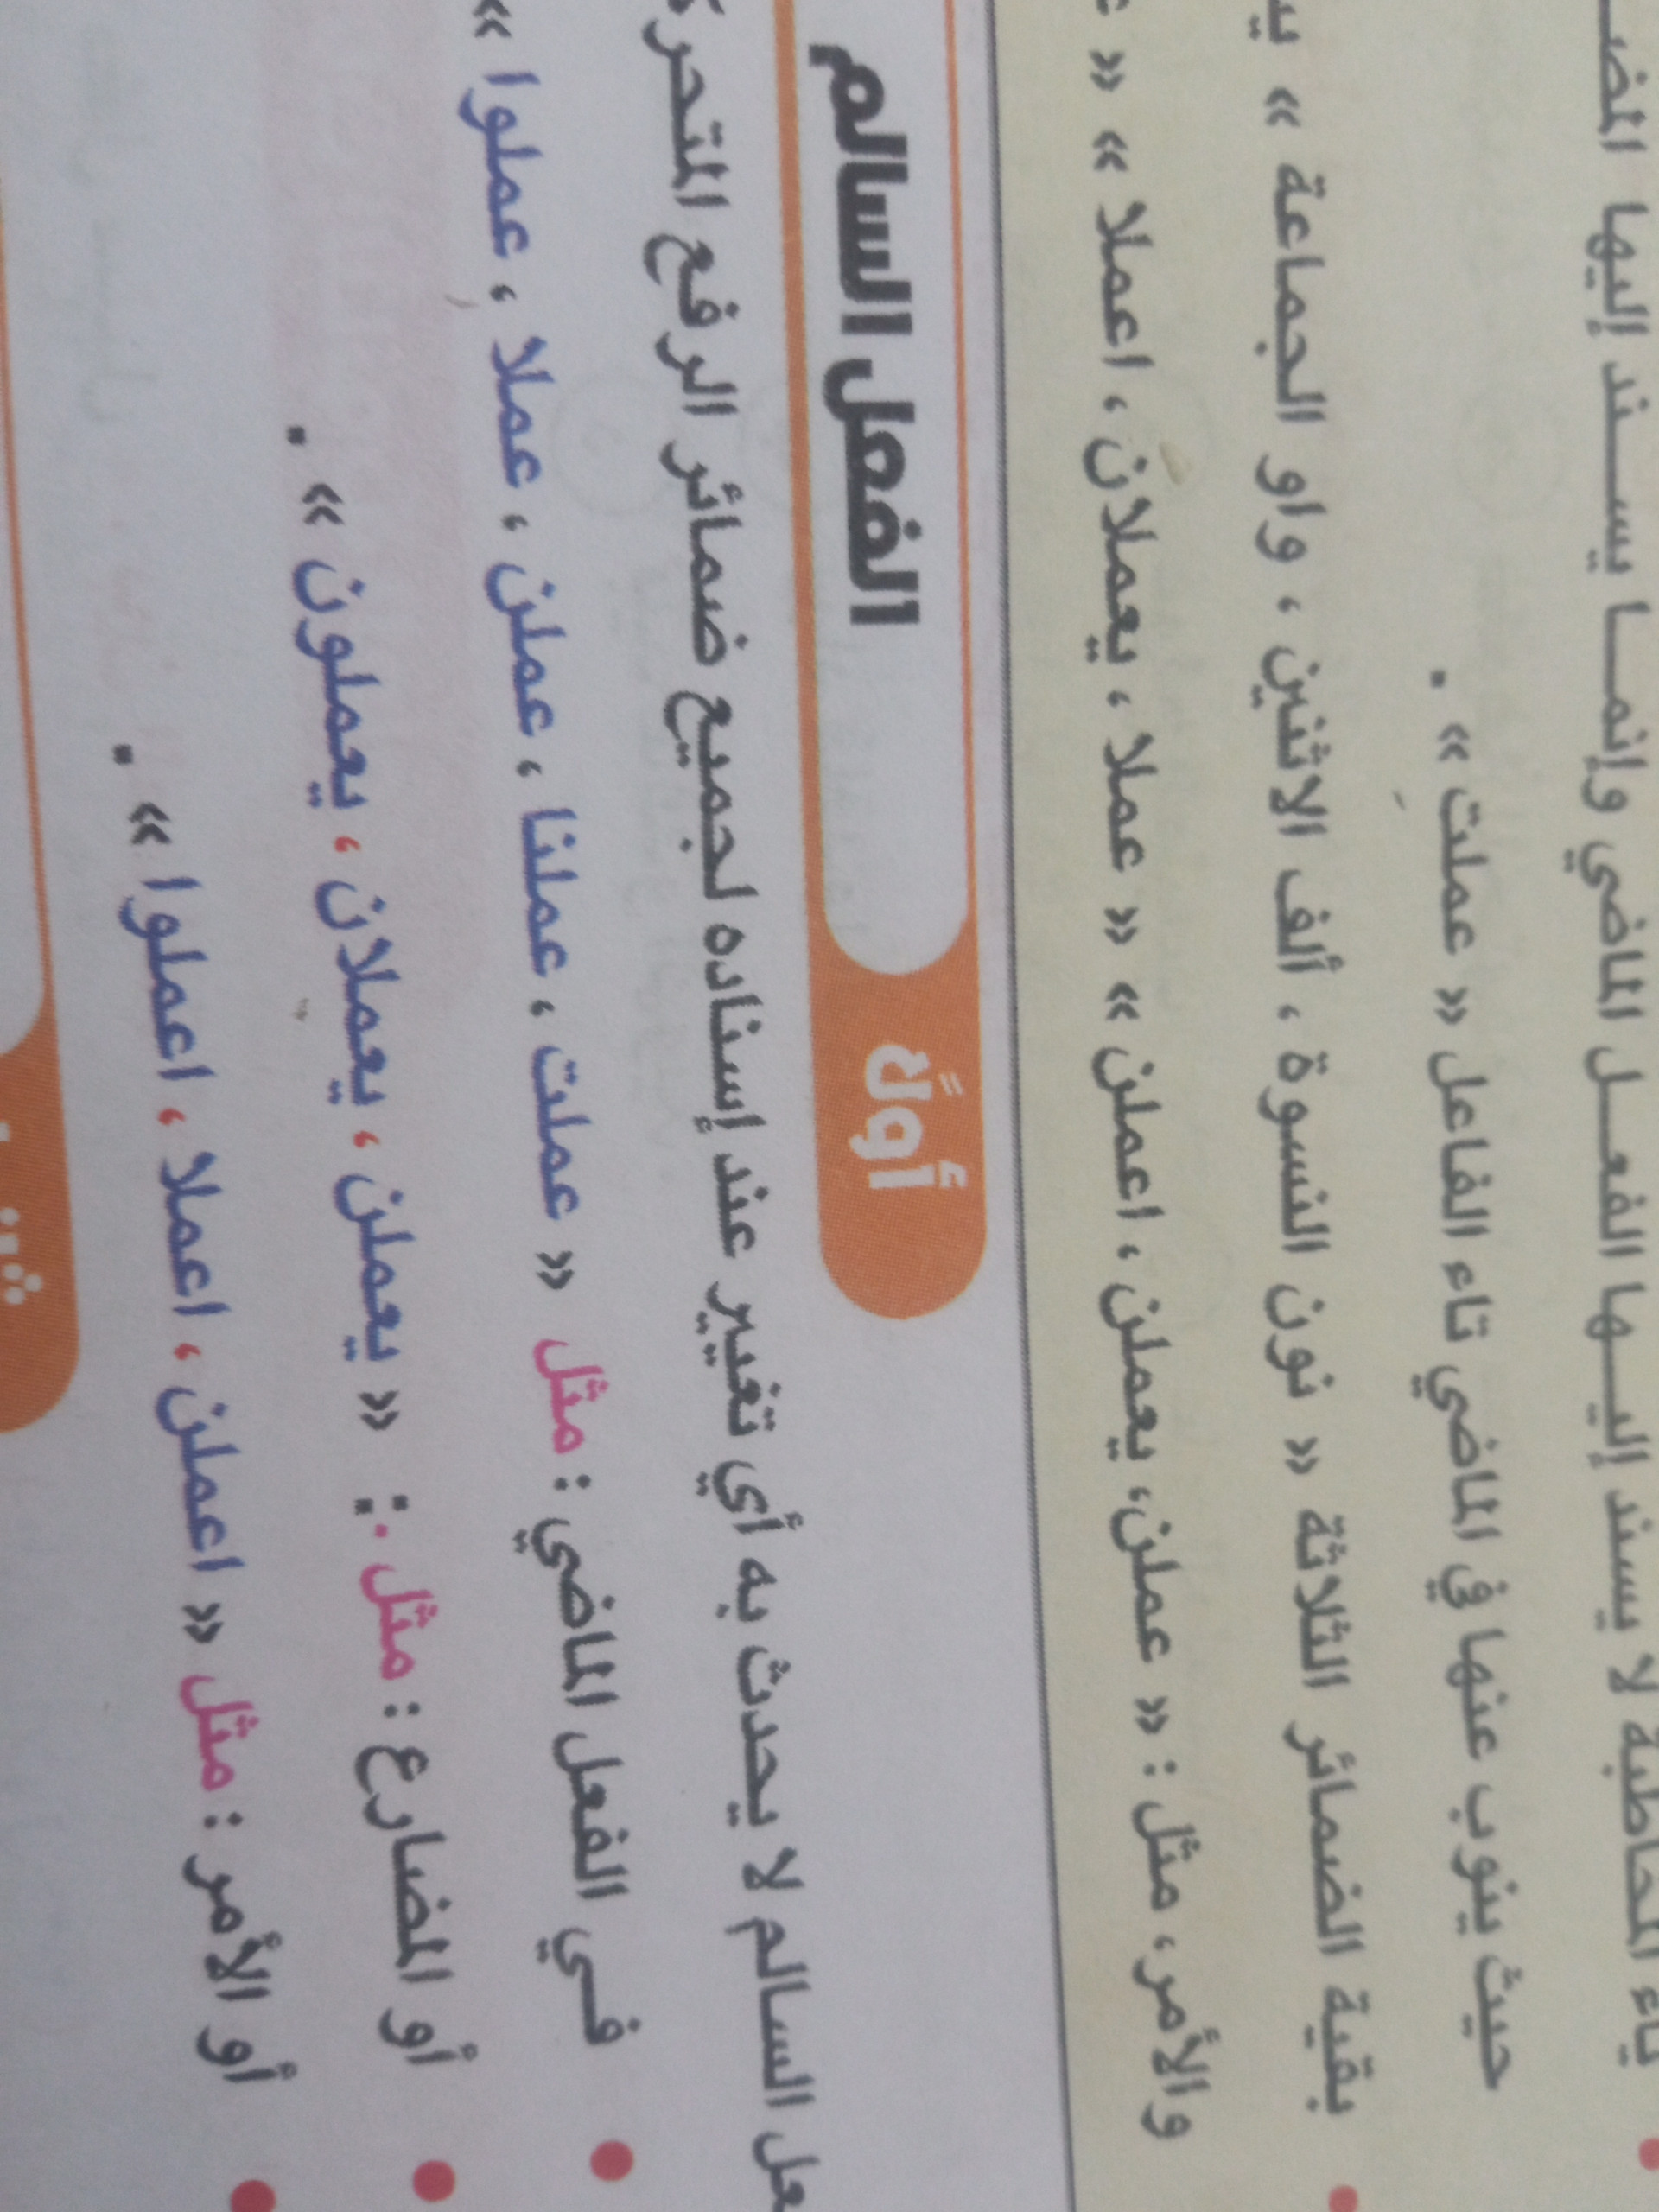 ياء المخاطبة لا يسند إليـها الفعـل الماضي وإنمـا يسـند إليها
حيث ينوب عنها في الماضي تاء الفاعل « عملت » .
بقية الضمائر الثلاثة « نون النسوة ، ألف الاثنين ، واو الجماعة »
والأمر، مثل : « عملن، يعملن ، اعملن » « عملا ، يعملان ، اعملا » «
أولًا الفعل السالم
السالم لا يحدث به أي تغيير عند إسناده لجميع ضمائر الرفع
• فـي الفعل الماضي : مثل « عملت ، عملنا ، عملن ، عملا ، عملوا »
• أو المضارع : مثل : « يعملن ، يعملان ، يعملون » .
• أو الأمر : مثل « اعملن ، اعملا ، اعملوا » .